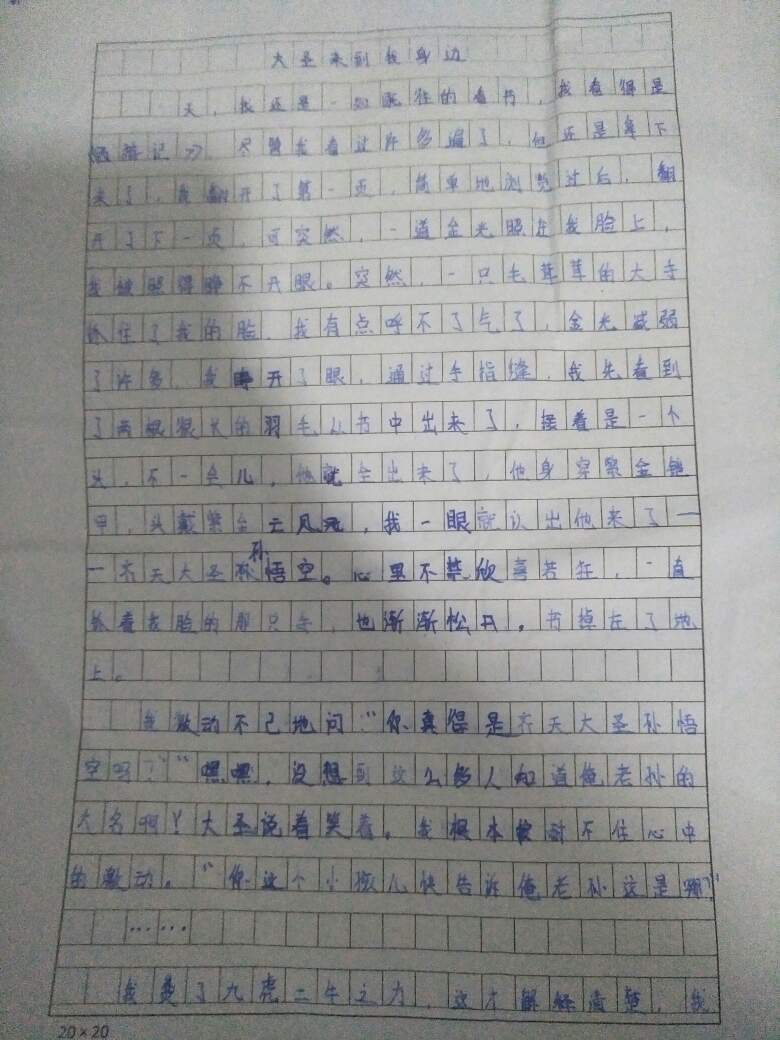 大圣来到我身边
天，我还是一如既往的看书，我看得是
《西游记》，尽管我看过许多遍了，但还是拿下
来了，我翻开了第一页，简单地浏览过后，翻
开了下一页，可突然，一道金光照在我脸上，
我被照得睁不开眼。突然，一只毛茸茸的大手
抓住了我的脸，我有点呼不了气了，金光减弱
了许多，我睁开了眼，通过手指缝，我先看到
了两根很长的羽毛从书中出来了，接着是一个
头，不一会儿，他就全出来了，他身穿紫金铠
甲，头戴紫金云风元，我一眼就认出他来了—
—齐天大圣孙悟空。心里不禁欣喜若狂，一直
抓着我脸的那只手，也渐渐松开，书掉在了地
上。
我激动不已地问：“你真得是齐天大圣孙悟
空吗？”“嘿嘿，没想到这么多人知道俺老孙的
大名啊！大圣说着笑着。我根本耐不住心中
的激动。“你这个小孩儿快告诉俺老孙这是哪？”
……
我费了九虎二牛之力，这才解释清楚，我
20×20